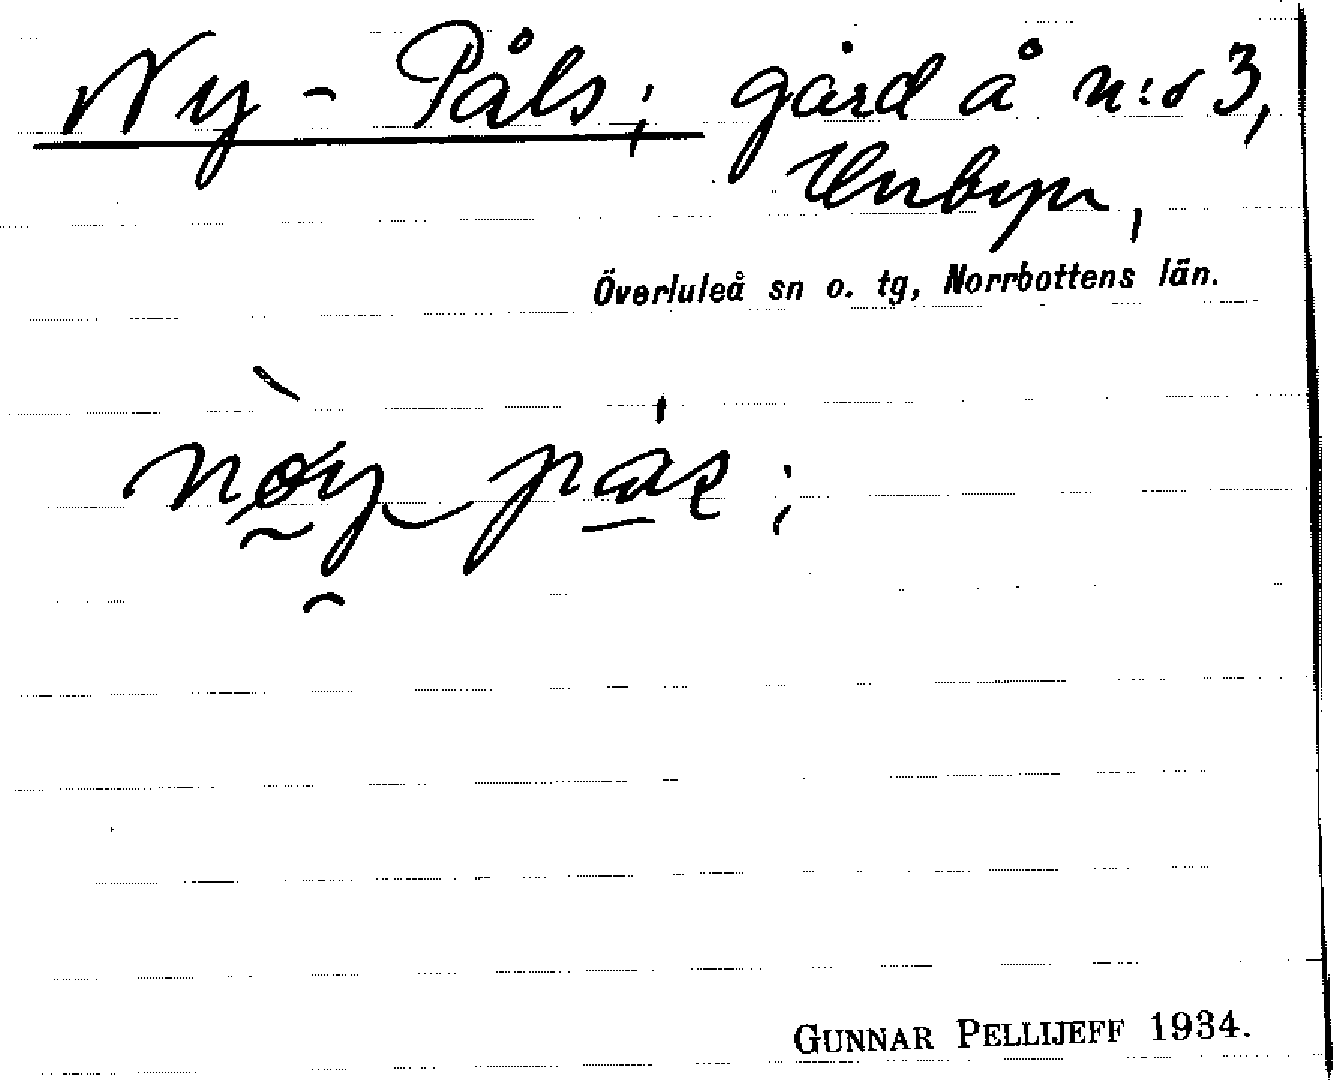 Ny-Påls; gård å n:o 3,
Unbyn,
Överluleå sn o. tg, Norrbottens län.
GUNNAR PELLIJEFF 1934.